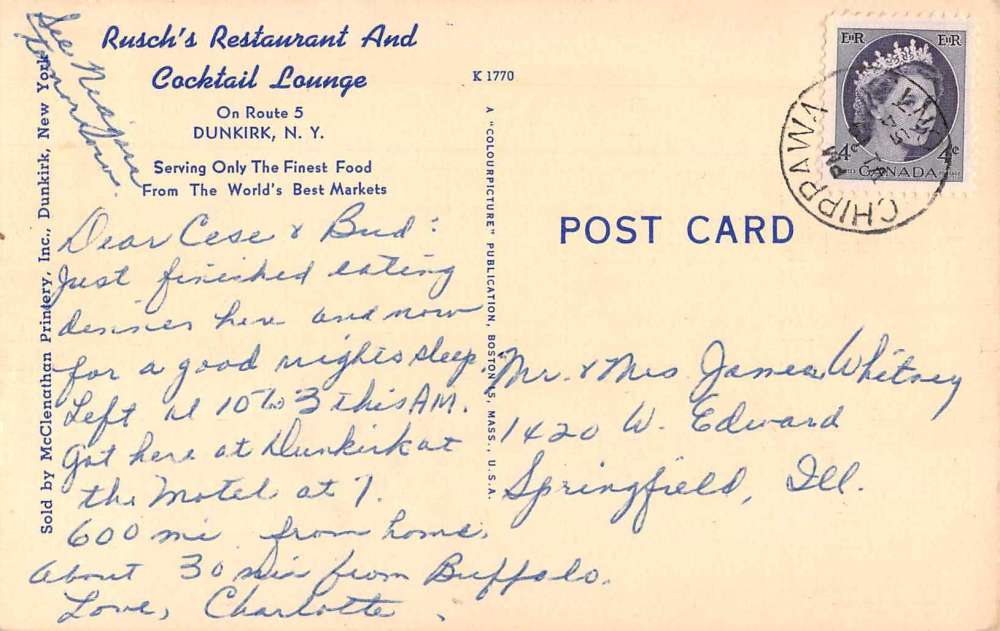 See Niagara
tomorrow.
Rusch's Restaurant And
Cocktail Lounge
On Route 5
DUNKIRK, N. Y.
Serving Only The Finest Food
From The World's Best Markets
Dear Cese & Bud:
Just finished eating
dinner here and now
for a good nights sleep.
Left at 10 to 3 this AM.
Got here at Dunkirk at
the Motel at 7.
600 mi from home.
About 30 min from Buffalo.
Love, Charlotte.
Sold by McClenathan Printery, Inc., Dunkirk, New York
K 1770
A "COLOURPICTURE" PUBLICATION, BOSTON 15, MASS., U.S.A.
POST CARD
EIIR EIIR
4¢ 4¢
CANADA
CHIPPAWA
PM
Mr. & Mrs James Whitney
1420 W. Edward
Springfield, Ill.